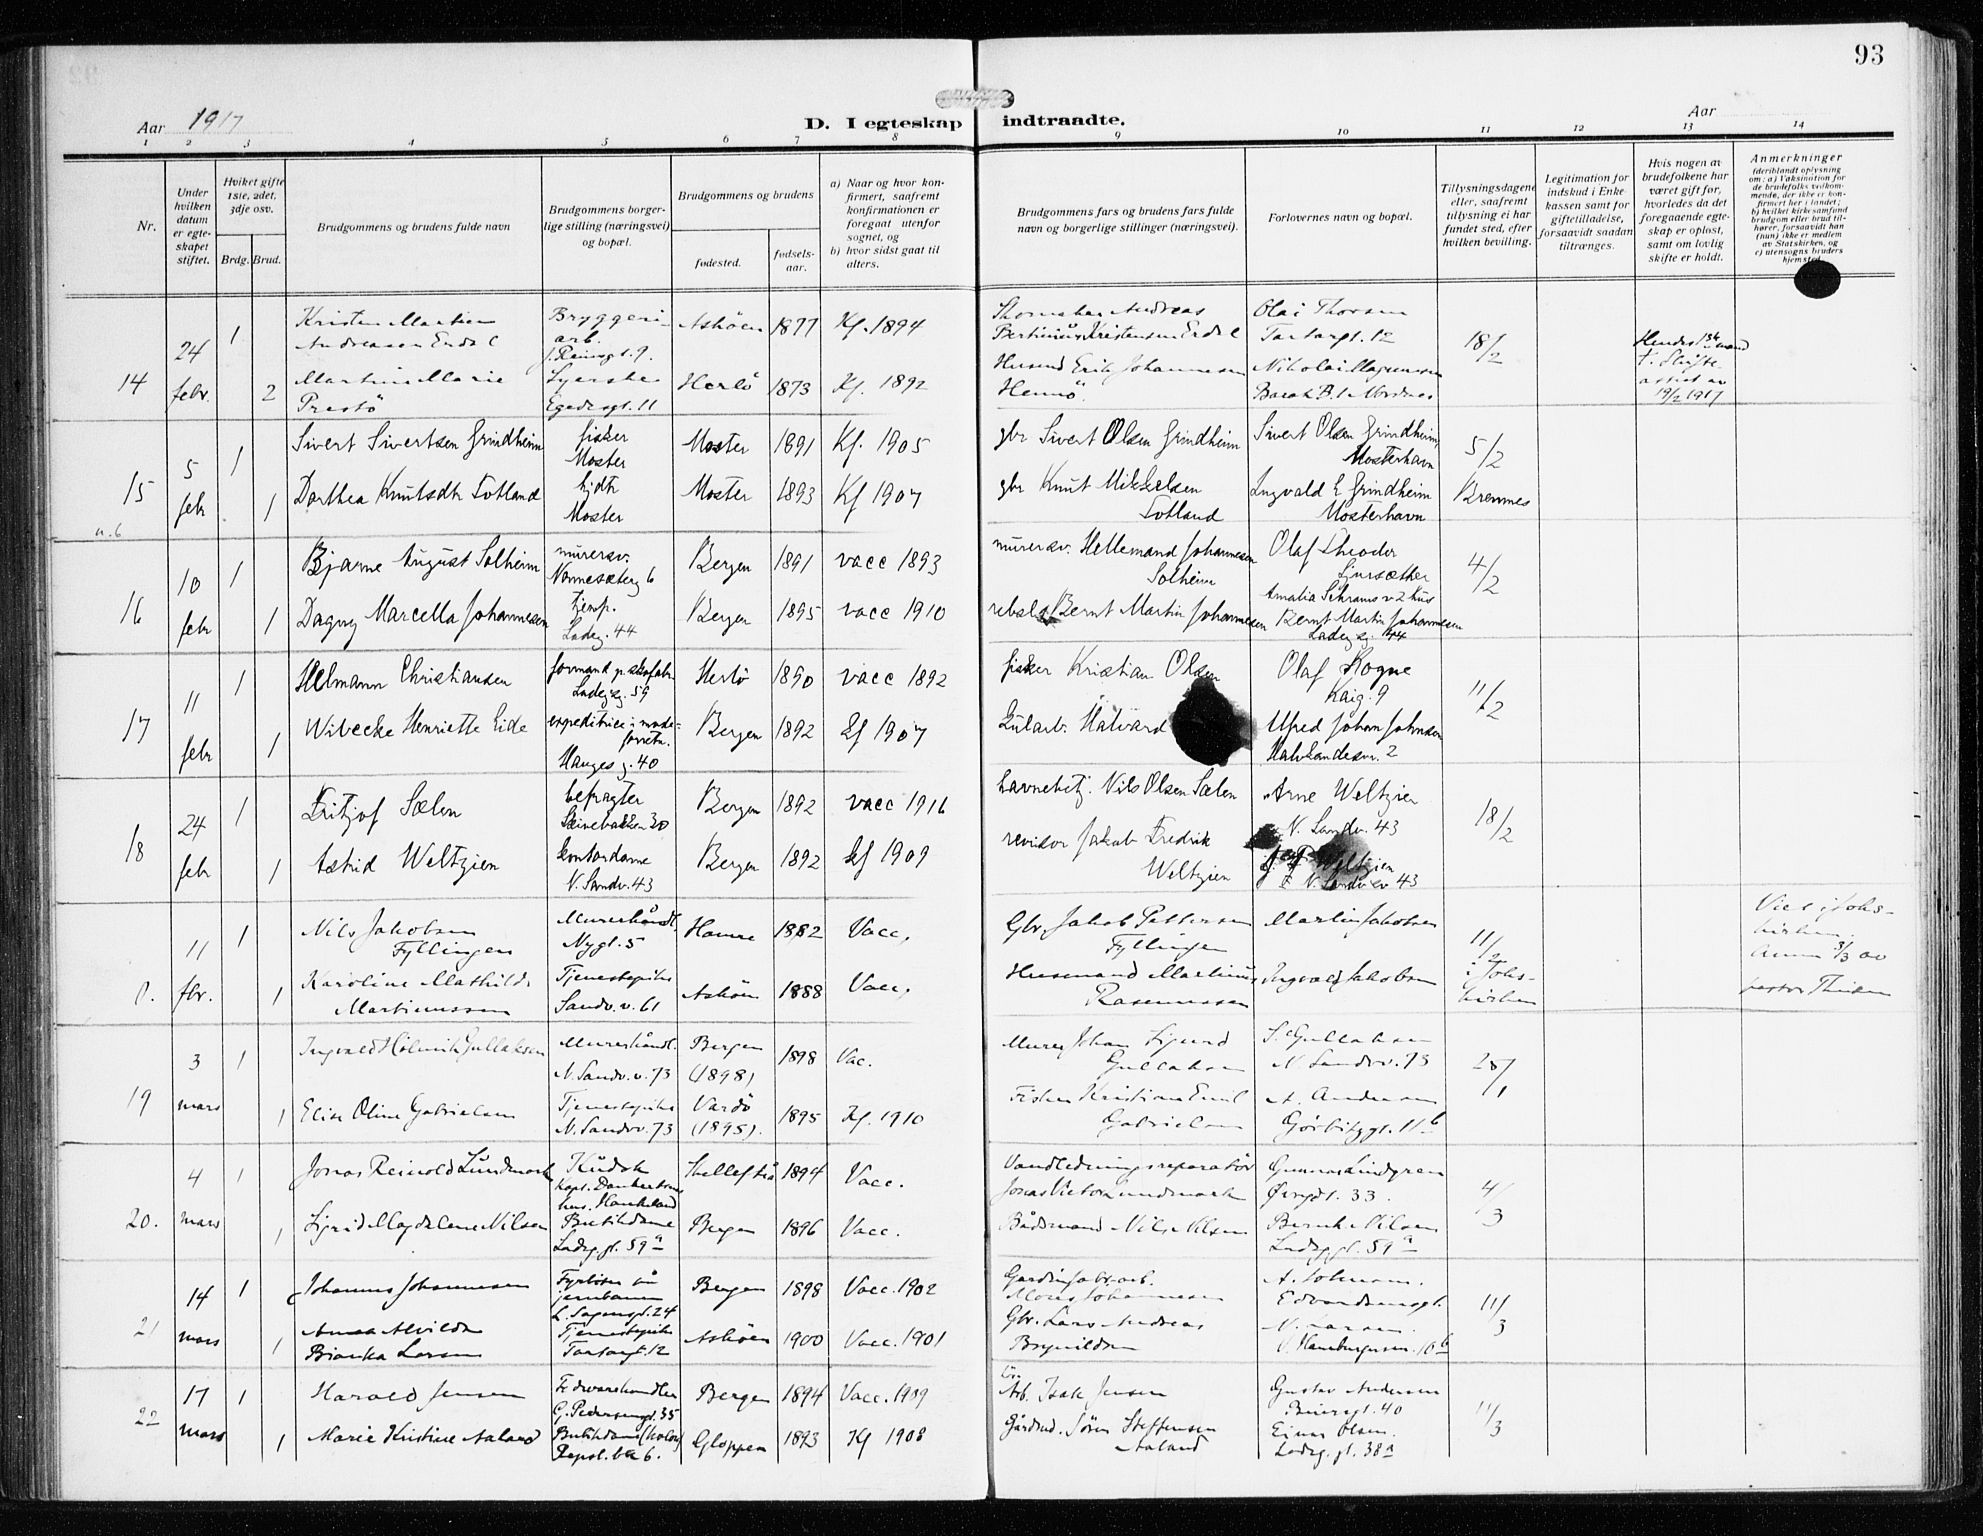 93
Aar 1917
D. I egteskap indtraadte.
Aar
1 2 3 4 5 6 7 8 9 10 11 12 13 14
Nr.
Under hvilken datum er egteskapet stiftet.
Hvilket gifte 1ste, 2det, 3dje osv.
Brdg. Brud.
Brudgommens og brudens fulde navn
Brudgommens borgerlige stilling (næringsvei) og bopæl.
Brudgommens og brudens
fødested.
fødselsaar.
a) Naar og hvor konfirmert, saafremt konfirmationen er foregaaet utenfor sognet, og
b) hvor sidst gaat til alters.
Brudgommens fars og brudens fars fulde navn og borgerlige stillinger (næringsvei).
Forlovernes navn og bopæl.
Tillysningsdagene eller, saafremt tillysning ei har fundet sted, efter hvilken bevilling.
Legitimation for indskud i Enkekassen samt for giftetilladelse, forsaavidt saadan tiltrænges.
Hvis nogen av brudefolkene har været gift før, hvorledes da det foregaaende egteskap er opløst, samt om lovlig skifte er holdt.
Anmerkninger (deriblandt oplysning om: a) Vaksination for de brudefolks vedkommende, der ikke er konfirmert her i landet; b) hvilket kirkesamfund brudgom eller brud tilhører, forsaavidt han (hun) ikke er medlem av Statskirken, og c) utensogns bruders hjemsted.
14 24 febr. 1 Kristen Martin Andreassen Erdal Bryggeriarb. Askøen 1877 Kf. 1894
Thomas Andreas Bertinius Kristensen Erdal Olai Thorsen Tartargt. 12 18/2
2 Martine Marie Prestö Egedesgt. 11 Herlö 1873 Kf. 1892
Husmd Erik Johannesen Hennö. Nikolai Magnussen Nordnes
Hendes 1ste mand † Skifteattest av 19/2 1917
15 5 febr 1 Sivert Sivertsen Grindheim fisker Moster Moster 1891 Kf. 1905
gbr Sivert Olsen Grindheim Sivert Olsen Grindheim, Mosterhavn 5/2
1 Dorthea Knutsdtr Totland Moster Moster 1893 Kf 1907
gbr Knut Mikkelsen Totland Ingvald E Grindheim Mosterhavn Bremnes
n. 6
16 10 febr 1 Bjarne August Solheim murersv. Nonnesæterg 6 Bergen 1891 vacc 1893
murersv. Hellemand Johannesen Solheim Olaf Theodor Amalie Schrams v 2 hus 4/2
1 Dagny Marcella Johannesen Ladeg. 44 Bergen 1895 vacc 1910
Bernt Martin Johannesen Bernt Martin Johannesen Ladeg.g. 44
17 11 febr 1 Helmann Christiansen formand p. skofabr Ladeg.g. 59 Herlö 1890 vacc 1892
fisker Kristian Olsen Olaf Kogne Kaig. 9 11/2
1 Wibecke Henriette Eide expeditrice i modeforretn. Hauges g. 40 Bergen 1892 kf 1907
kularb. Halvard Alfred Johan Johnsen 2
18 24 febr 1 Fritjof Sælen befragter Steinebakken 30 Bergen 1892 vacc 1916
havnebetj. Nils Olsen Sælen Arne Weltzien N. Sandv. 43 18/2
1 Astrid Weltzien kontordame N. Sandv. 43 Bergen 1892 kf 1909
revisor Jakob Fredrik Weltzien Weltzien N. Sandv. 43
11 fbr. 1 Nils Jakobsen Fyllingen Murerhåndl. Nygt. 5 Hamre 1882 Vacc.
Gbr. Jakob Pettersen Fyllingen Martin Jakobsen 11/2 i Johs-kirken
1 Karoline Mathilde Martinussen Tjenestepike Sandv. v. 61 Askøen 1888 Vacc.
Husmand Martinus Rasmussen Ingvald Jakobsen
Viet i Johs-kirken 3/3 av pastor Thisen
19 3 mars 1 Ingvald Holmvik Gullaksen Murerhåndl. N. Sandv. v. 73 Bergen (1898) 1898 Vac.
Murer Johan Sigurd Gullaksen S. Gullaksen N. Sandv. 73 28/1
1 Elise Oline Gabrielsen Tjenestepike N. Sandv. 73 Vardö (1895). 1895 Kf. 1910
Fisker Kristian Emil Gabrielsen A. Andersen 11 b
20. 4 mars 1 Jonas Reinold Lundmark Kudsk Kapt. Dankertsens hus. Haukeland Skellefteå 1894 Vacc.
Vandledningsreparatör Jonas Victor Lundmark Gunnar Lindgren Øvregt. 33. 4/3
1 Sigrid Magdalene Nilsen Butikdame Ladeg. gt. 59 a Bergen 1896 Vacc.
Bådsmand Nils Nilsen Bernt Nilsen Ladeg.gt. 59 a
21 14 mars 1 Johannes Johannesen Fyrböter jernbanen L. Sagensgt. 24 Bergen 1898 Vacc. 1902
Gardinfabr. arb. Johannesen A. Solheim. Edvardsensgt. 11/3
1 Anna Alvilda Bianka Larsen Tjenestepike Tartargt. 12 Askøen 1900 Vacc. 1901
Gbr. Lars Andreas Brynildsen N. Larsen. 10 b
22 17 mars 1 Harald Jensen Fedevarehandler C. Pedersensgt. 35 Bergen 1894 Vacc. 1909
Arb. Isak Jensen Gustav Andersen 40 11/3
1 Marie Kristine Aaland Butikdame Repsl. bk 6. Gloppen 1893 Kf 1908
Gårdbr. Sören Steffensen Aaland Einar Olsen. Ladeg. gt. 38 a